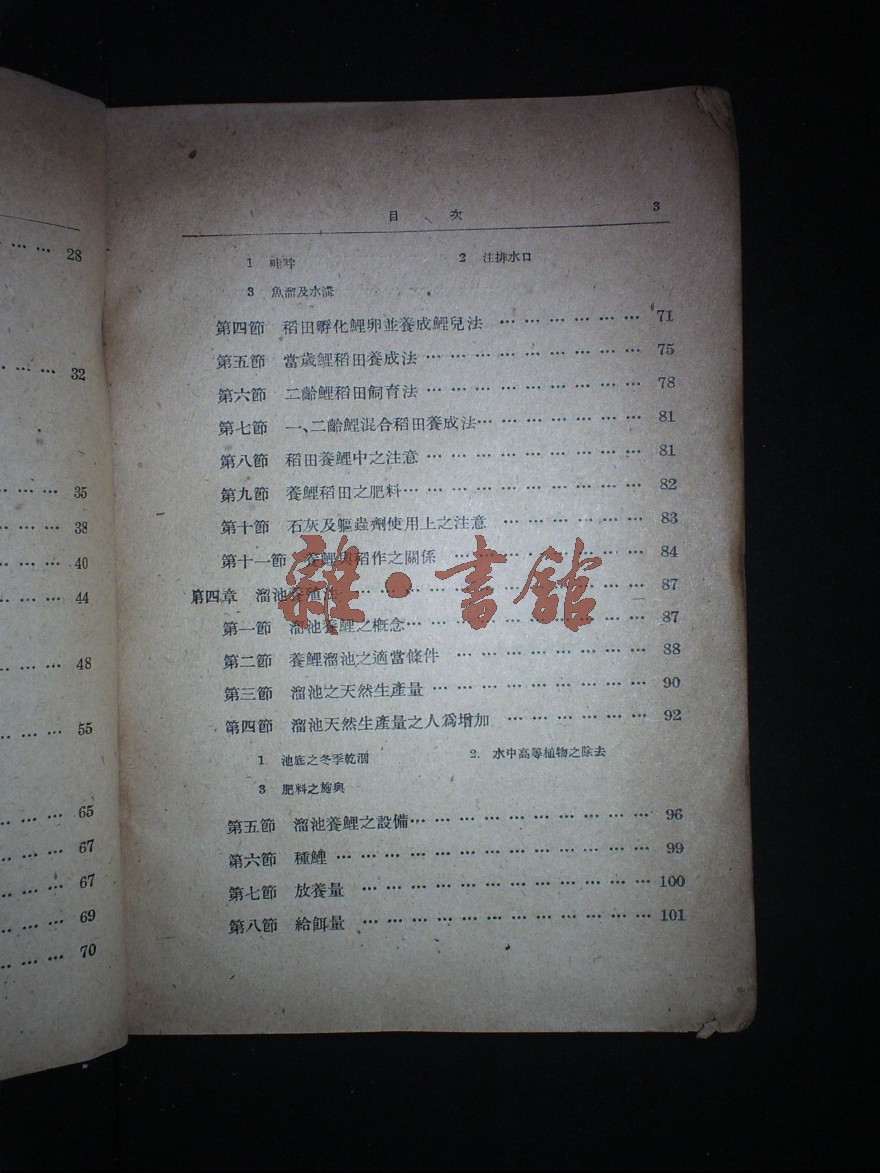 28
32
35
38
40
44
48
55
65
67
67
69
70
目次 3
1 畦畔 2 注排水口
3 魚溜及水溝
第四節 稻田孵化鯉卵並養成鯉兒法 … … … … … … 71
第五節 當歲鯉稻田養成法 … … … … … … … … … 75
第六節 二齡鯉稻田飼育法 … … … … … … … … … 78
第七節 一、二齡鯉混合稻田養成法… … … … … … … 81
第八節 稻田養鯉中之注意 … … … … … … … … … 81
第九節 養鯉稻田之肥料… … … … … … … … … … 82
第十節 石灰及驅蟲劑使用上之注意 … … … … … … 83
第十一節 養鯉與稻作之關係 … … … … … … … … 84
第四章 溜池養殖法 … … … … … … … … … … … 87
第一節 溜池養鯉之概念… … … … … … … … … … 87
第二節 養鯉溜池之適當條件 … … … … … … … … 88
第三節 溜池之天然生產量 … … … … … … … … … 90
第四節 溜池天然生產量之人爲增加 … … … … … … 92
1. 池底之冬季乾涸 2. 水中高等植物之除去
3 肥料之施與
第五節 溜池養鯉之設備… … … … … … … … … … 96
第六節 種鯉 … … … … … … … … … … … … … 99
第七節 放養量 … … … … … … … … … … … … 100
第八節 給餌量 … … … … … … … … … … … … 101
雜·書館